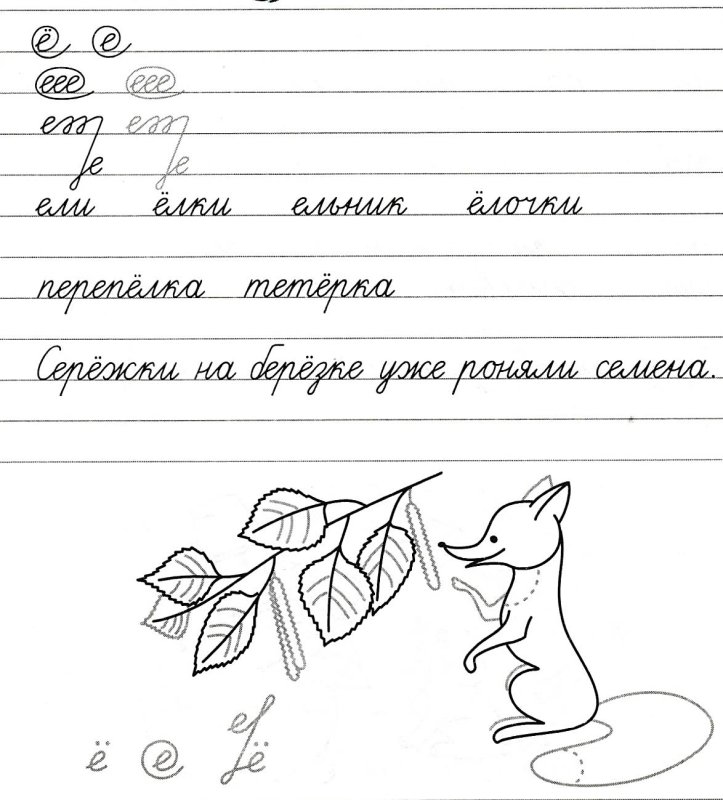 ё е
еее еее
ет ет
е е
ели ёлки ельник ёлочки
перепёлка тетёрка
Серёжки на берёзке уже роняли семена.
ё е е ё